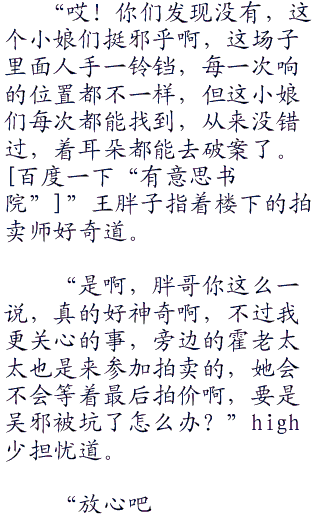 “哎！你们发现没有，这
个小娘们挺邪乎啊，这场子
里面人手一铃铛，每一次响
的位置都不一样，但这小娘
们每次都能找到，从来没错
过，着耳朵都能去破案了。
[百度一下“有意思书
院”]”王胖子指着楼下的拍
卖师好奇道。
“是啊，胖哥你这么一
说，真的好神奇啊，不过我
更关心的事，旁边的霍老太
太也是来参加拍卖的，她会
不会等着最后拍价啊，要是
吴邪被坑了怎么办？”high
少担忧道。
“放心吧